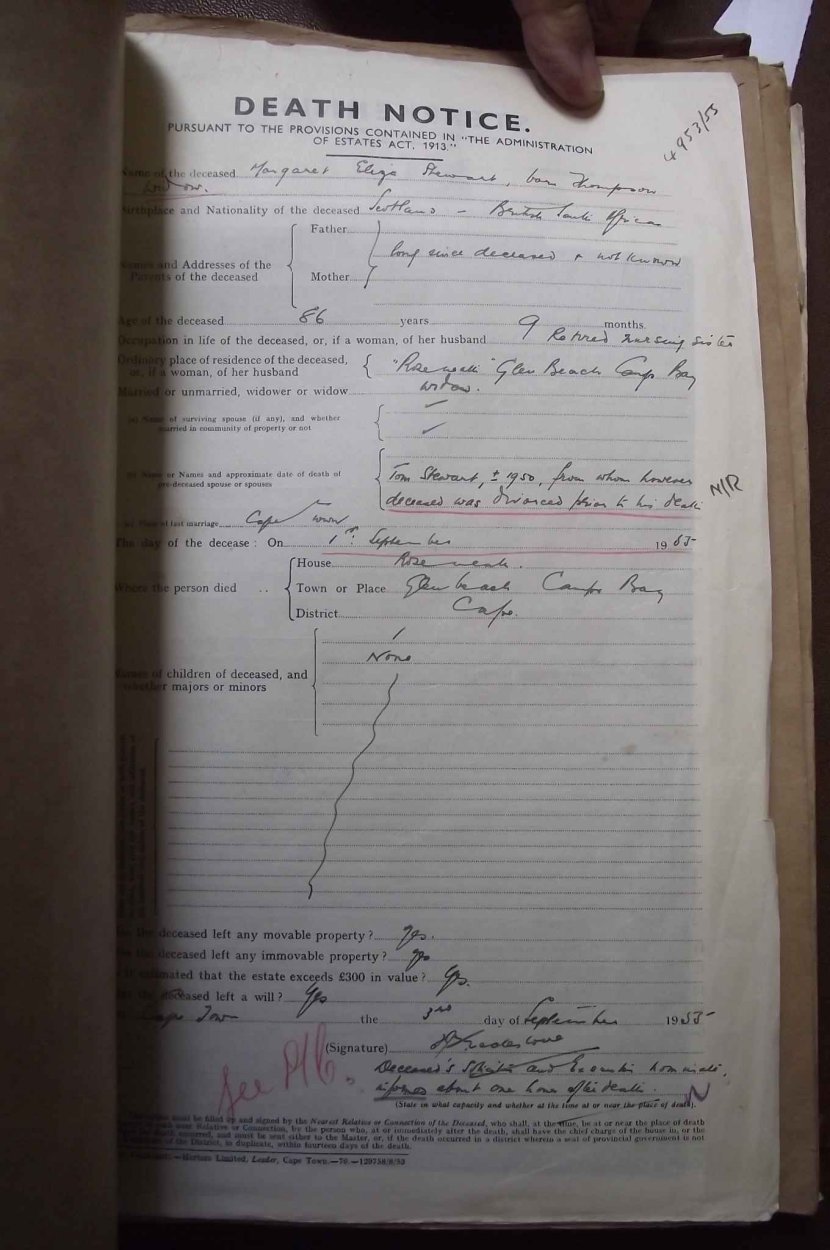 DEATH NOTICE.
4953/55
PURSUANT TO THE PROVISIONS CONTAINED IN "THE ADMINISTRATION
OF ESTATES ACT, 1913."
Name of the deceased Margaret Eliza Stewart, born Thompson
widow.
Birthplace and Nationality of the deceased Scotland - British South African
Father
long since deceased & not known
Names and Addresses of the
Parents of the deceased
Mother
Age of the deceased 86 years 9 months.
Occupation in life of the deceased, or, if a woman, of her husband Retired nursing sister
Ordinary place of residence of the deceased,
or, if a woman, of her husband "Roseneath" Glen Beach Camps Bay
Married or unmarried, widower or widow widow.
(a) Name of surviving spouse (if any), and whether
married in community of property or not
(b) Name or Names and approximate date of death of
pre-deceased spouse or spouses
Tom Stewart, ± 1950, from whom however
deceased was divorced prior to his death
N/R
(c) Place of last marriage Cape Town
The day of the decease: On 1st September 1955
House Roseneath.
Where the person died .. Town or Place Glen beach Camps Bay
District Cape.
None
Names of children of deceased, and
whether majors or minors
the deceased left any movable property? Yes.
the deceased left any immovable property? yes
estimated that the estate exceeds £300 in value? Yes.
the deceased left a will? Yes
Cape Town the 3rd day of September 1955
(Signature)
See
Deceased's and Executor nominate,
about one hour after death.
(State in what capacity and whether at the time at or near the place of death).
must be filled up and signed by the Nearest Relative or Connection of the Deceased, who shall, at the time, be at or near the place of death
near Relative or Connection, by the person who, at or immediately after the death, shall have the chief charge of the house in, or the
death occurred, and must be sent either to the Master, or, if the death occurred in a district wherein a seat of provincial government is not
of the District, in duplicate, within fourteen days of the death.
Limited, Leader, Cape Town.—70.—129758/8/53